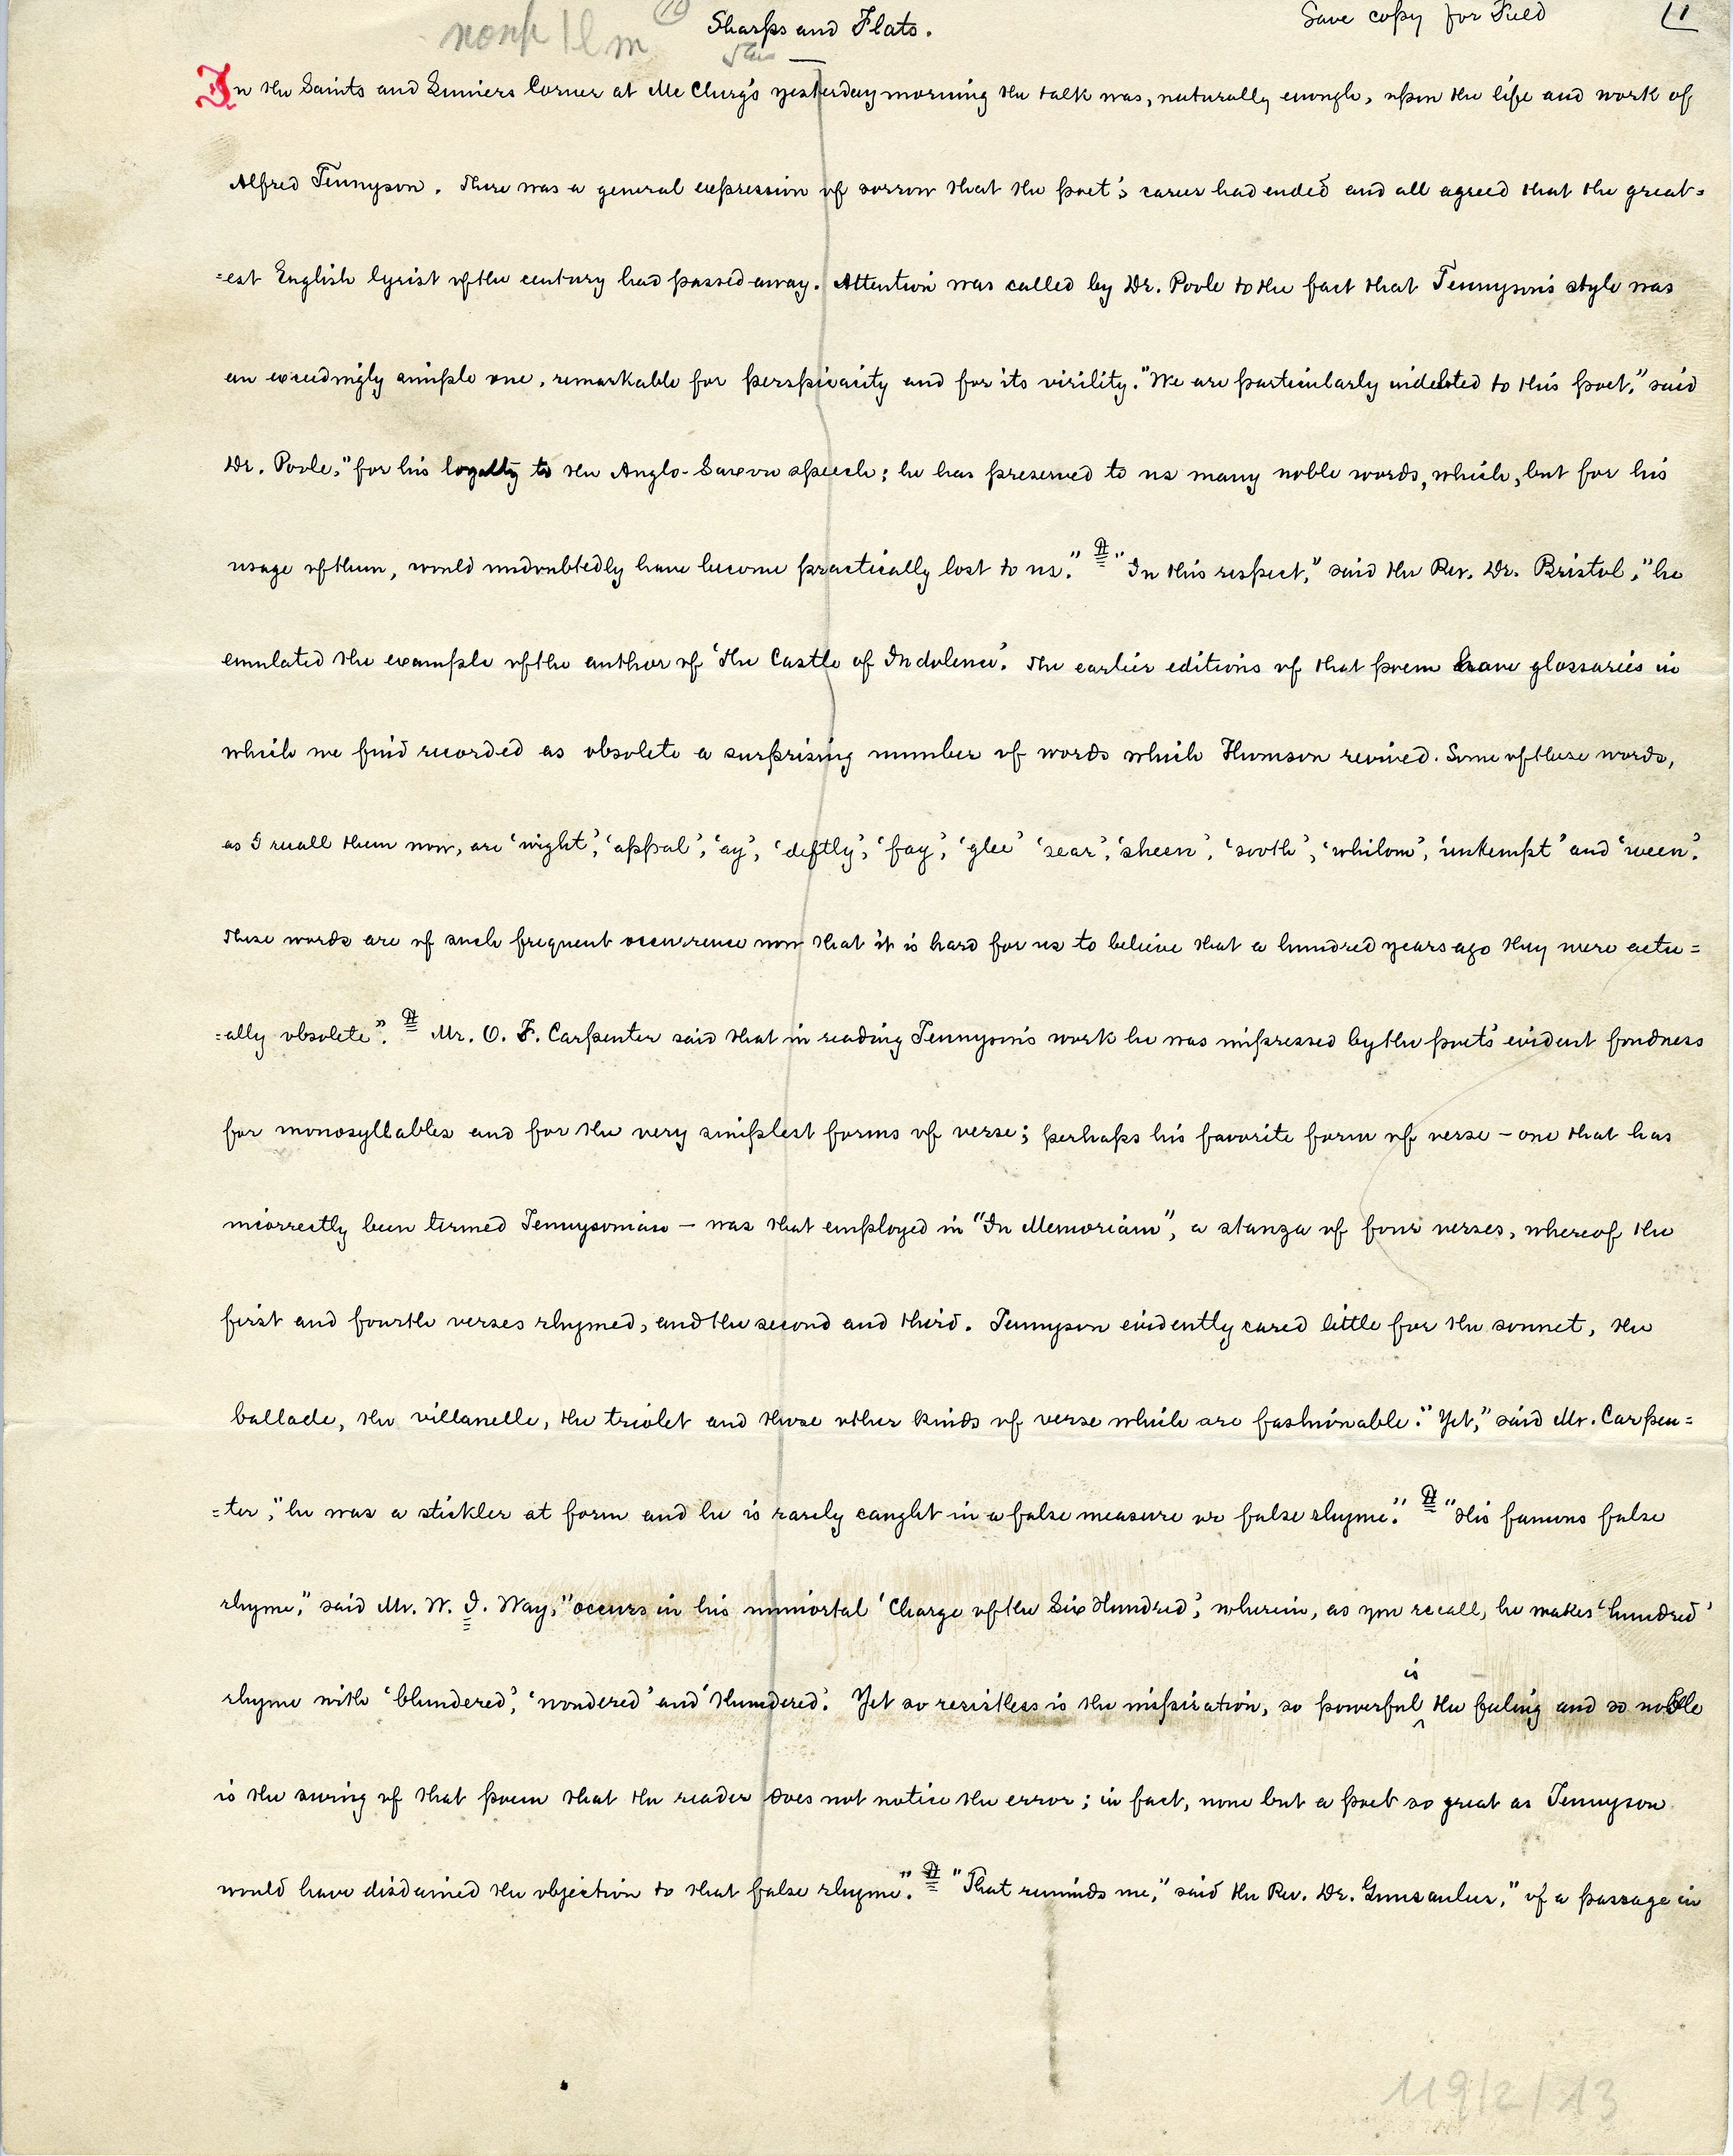 Sharps and Flats.
Save copy for Field
1
In the Saints and Sinners Corner at McClurg's yesterday morning the talk was, naturally enough, upon the life and work of
Alfred Tennyson. There was a general expression of sorrow that the poet's career had ended and all agreed that the great=
=est English lyrist of the century had passed away. Attention was called by Dr. Poole to the fact that Tennyson's style was
an exceedingly simple one, remarkable for perspicacity and for its virility. "We are particularly indebted to this poet," said
Dr. Poole, "for his loyalty to the Anglo-Saxon speech; he has preserved to us many noble words, which, but for his
usage of them, would undoubtedly have become practically lost to us." ¶ "In this respect," said the Rev. Dr. Bristol, "he
emulated the example of the author of 'The Castle of Indolence.' The earlier editions of that poem have glossaries in
which we find recorded as obsolete a surprising number of words which Thomson revived. Some of these words,
as I recall them now, are 'wight', 'appal', 'ay', 'deftly', 'fay', 'glee' 'sear', 'sheen', 'sooth', 'whilom', 'unkempt' and 'ween'.
These words are of such frequent occurrence now that it is hard for us to believe that a hundred years ago they were actu=
=ally obsolete". ¶ Mr. O. F. Carpenter said that in reading Tennyson's work he was impressed by the poet's evident fondness
for monosyllables and for the very simplest forms of verse; perhaps his favorite form of verse – one that has
incorrectly been termed Tennysonian – was that employed in "In Memoriam", a stanza of four verses, whereof the
first and fourth verses rhymed, and the second and third. Tennyson evidently cared little for the sonnet, the
ballade, the villanelle, the triolet and those other kinds of verse which are fashionable. "Yet," said Mr. Carpen=
=ter, "he was a stickler at form and he is rarely caught in a false measure or false rhyme." ¶ "His famous false
rhyme," said Mr. W. I. Way, "occurs in his immortal 'Charge of the Six Hundred', wherein, as you recall, he makes 'hundred'
rhyme with 'blundered', 'wondered' and 'thundered'. Yet so resistless is the inspiration, so powerful is the feeling and so noble
is the swing of that poem that the reader does not notice the error; in fact, none but a poet so great as Tennyson
would have disdained the objection to that false rhyme." ¶ "That reminds me," said the Rev. Dr. Gunsaulus, "of a passage in
119/2/13